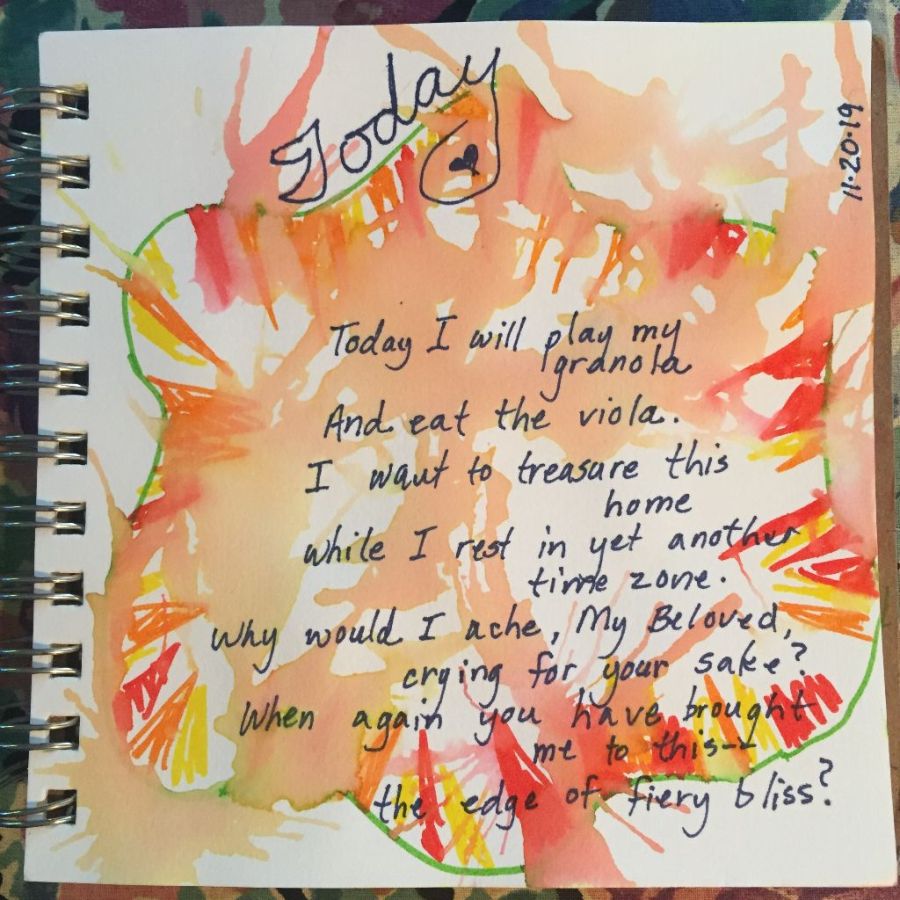 Today
11·20·19
Today I will play my
granola
And eat the viola.
I want to treasure this
home
while I rest in yet another
time zone.
Why would I ache, My Beloved,
crying for your sake?
When again you have brought
me to this--
the edge of fiery bliss?